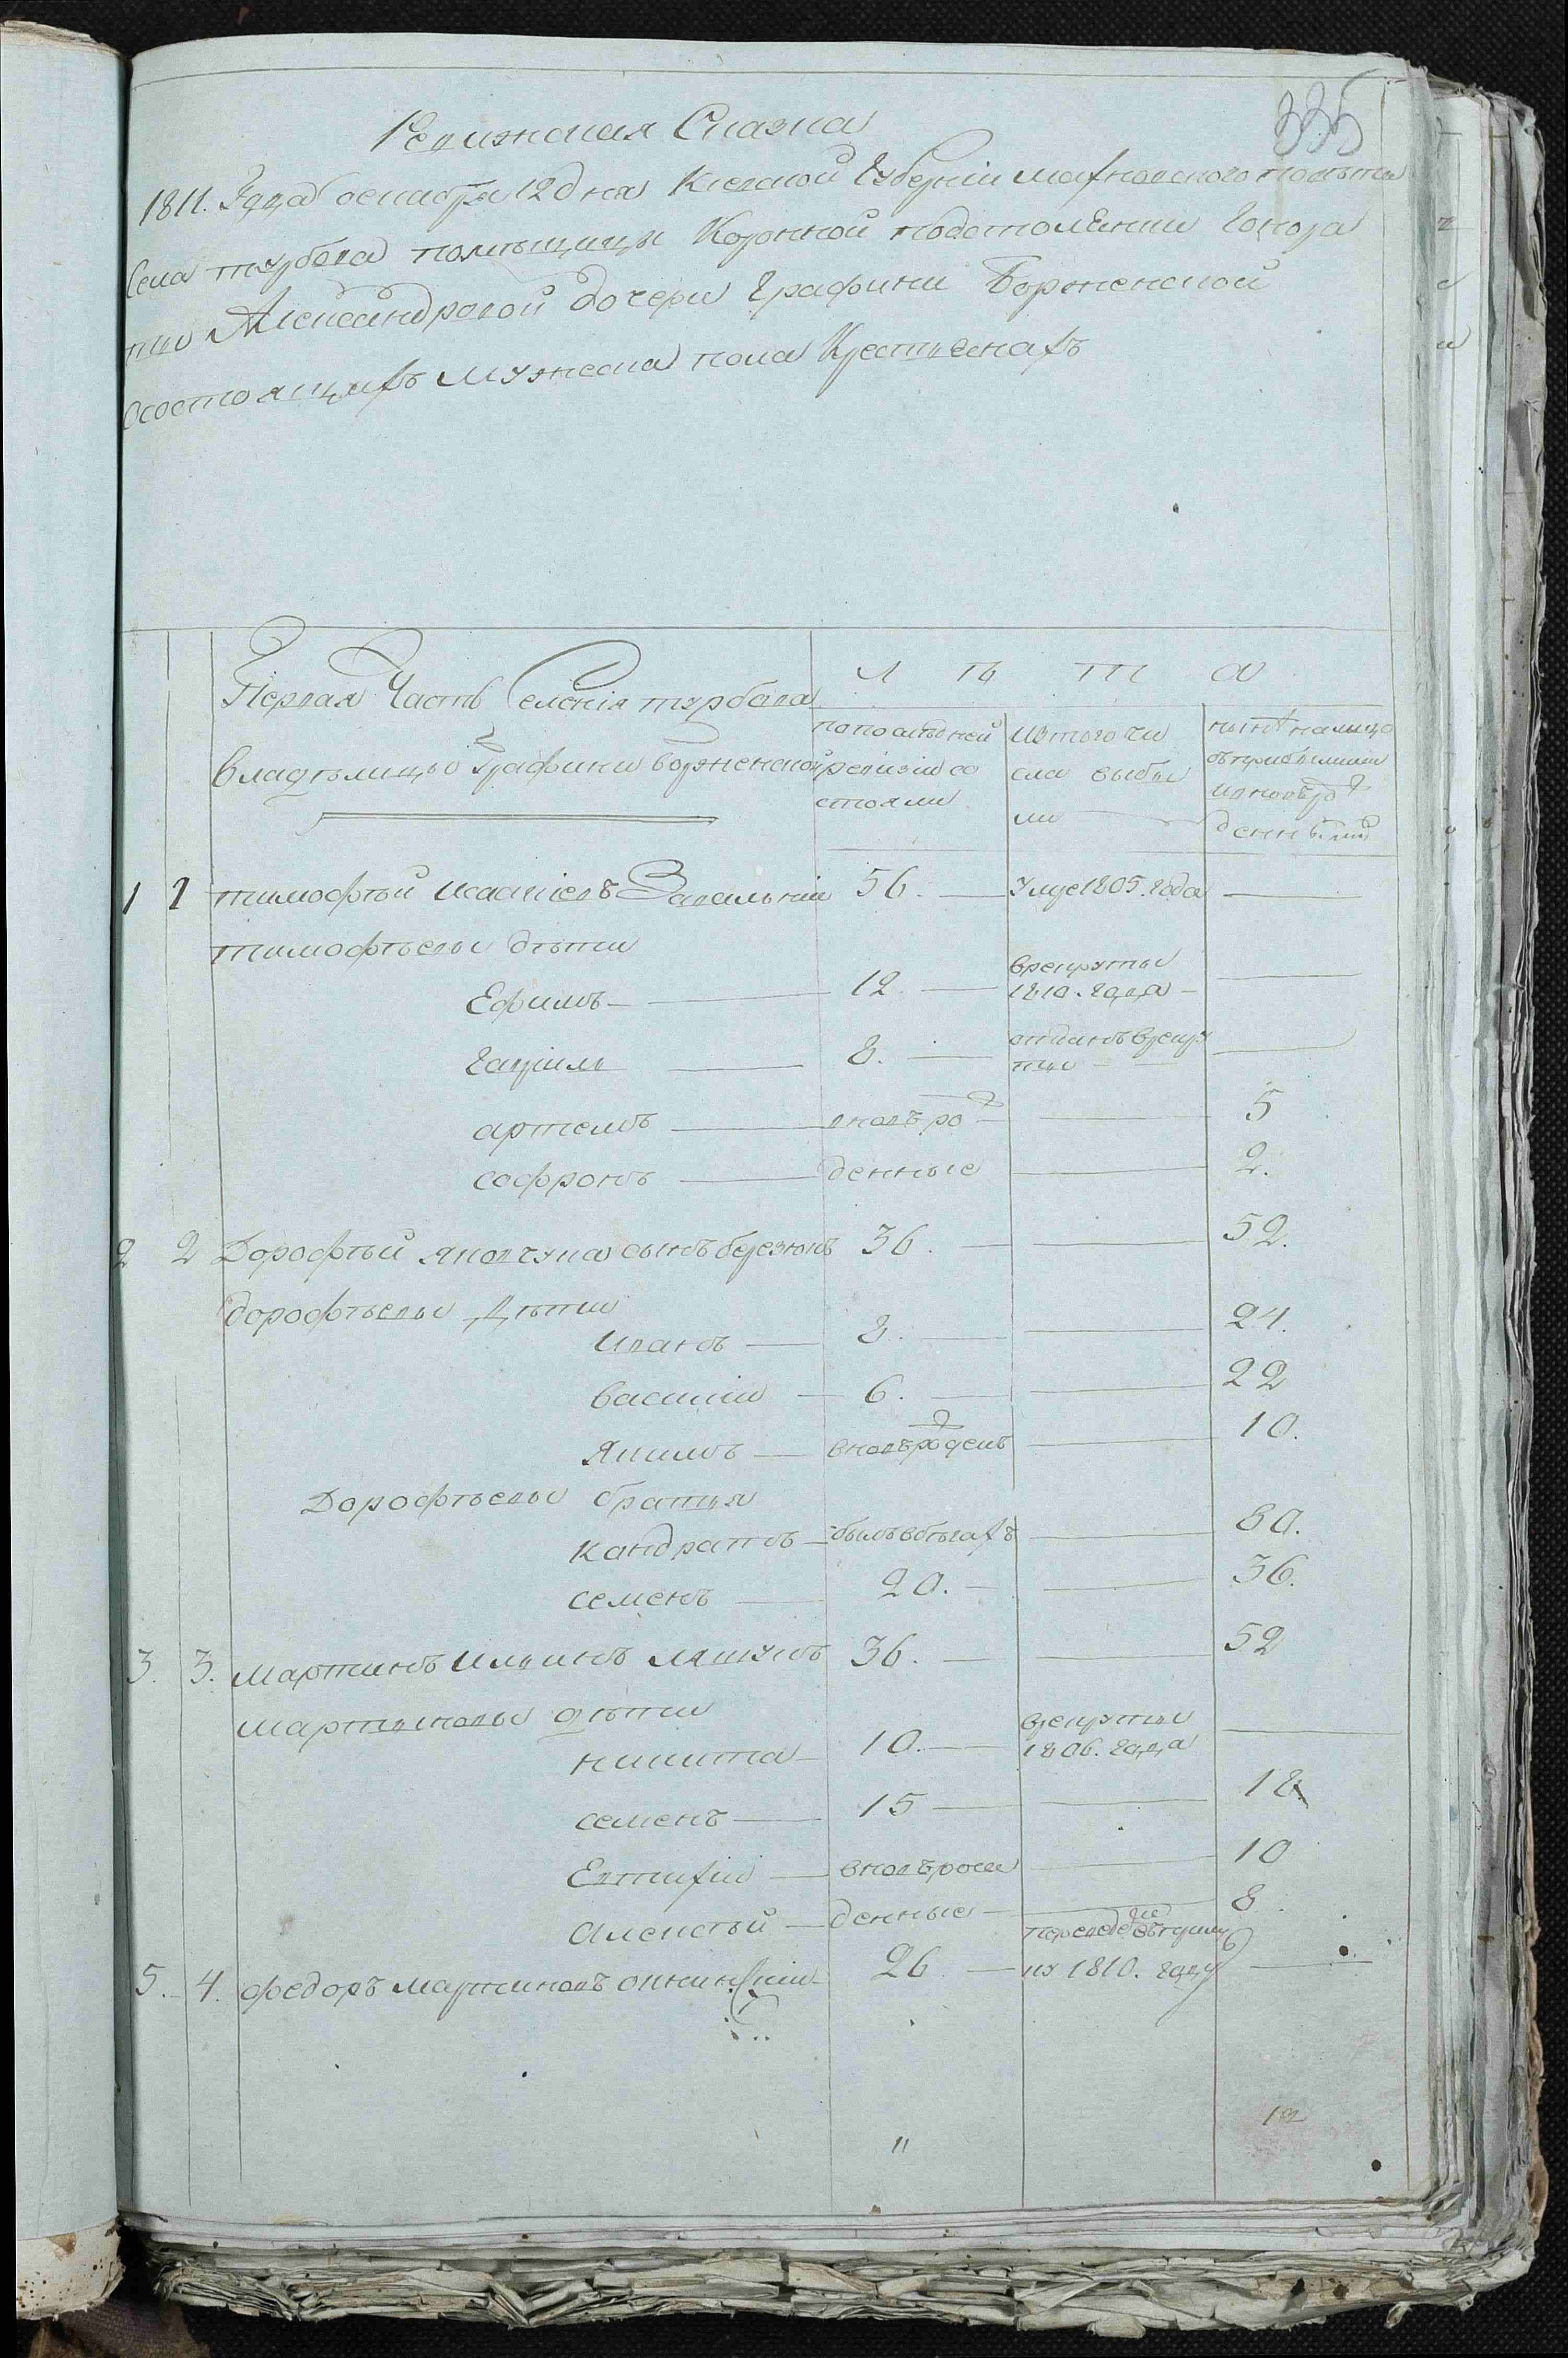 335
Ревижская Сказка
1811. Года октабря 12 дня Киевской Губерніи махновского повѣта
Села турбова помѣщицы Коронной подстолѣнки Гонора
ты Александровой дочери Графини Борженской
Осостоящихъ мужеска пола Крестьянахъ
Первая Часть Селенія турбова
владѣлицы Графини Борженской
Л ѣ т а
попослѣдней ревизіи со стояли
Изтого чи сла выбы ли
нынѣ налицо
съприбылими
ивновьро
денными
1 1 тимофѣй исакіевъ Завальній 56. — Умре 1805. Года —
тимофѣевы дѣти
Ефимъ — 12. — врекруты 1810. Года —
Гавріилъ — 8. — отданъ врекру ты —
артемъ — вновъро — 5
софронъ — денные — 2.
2 2 Дорофѣй яковчука сынъ березюкъ 36. — 52.
дорофѣевы Дѣти
Иванъ — 8. — 24.
василій — 6. — 22
Якимъ — вновъроденъ — 10.
Дорофѣевы братья
Кандратъ — былъвбѣгахъ — 80.
семенъ — 20. — 36.
3. 3. Мартинъ Ильинъ ляшукъ 36. — 52
Мартыновы дѣти
никита — 10. — врекруты 1806. Года —
семенъ — 15 — 18
Евтихій — вновърож — 10
Алексѣй — денные — 8
5. 4. федоръ мартиновъ 26 — 1810. году —
"